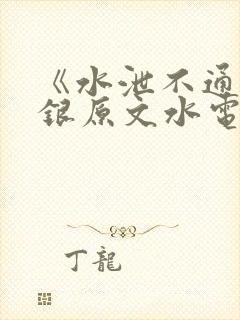 《水泄不通
銀原文水電
丁龍